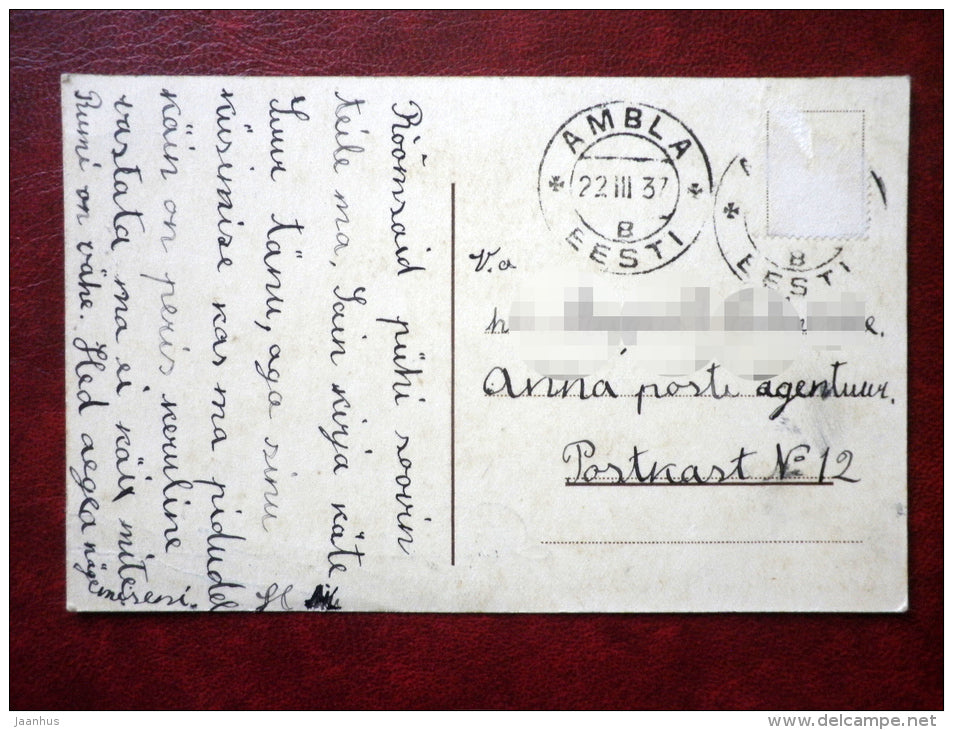 Rõõmsaid pühi soovin
teile ma, Sain kirja kätte
Suur tänu, aga sinu
küsimise kas ma pidudel
käin on peris keruline
vastata ma ei käi mite
Rumi on vähe. Hed aega nägemiseni.
AMBLA
22 III 37
B
EESTI
B
EESTI
V.a
Anna poste agentuur.
Postkast № 12
Jaanhus
www.delcampe.net